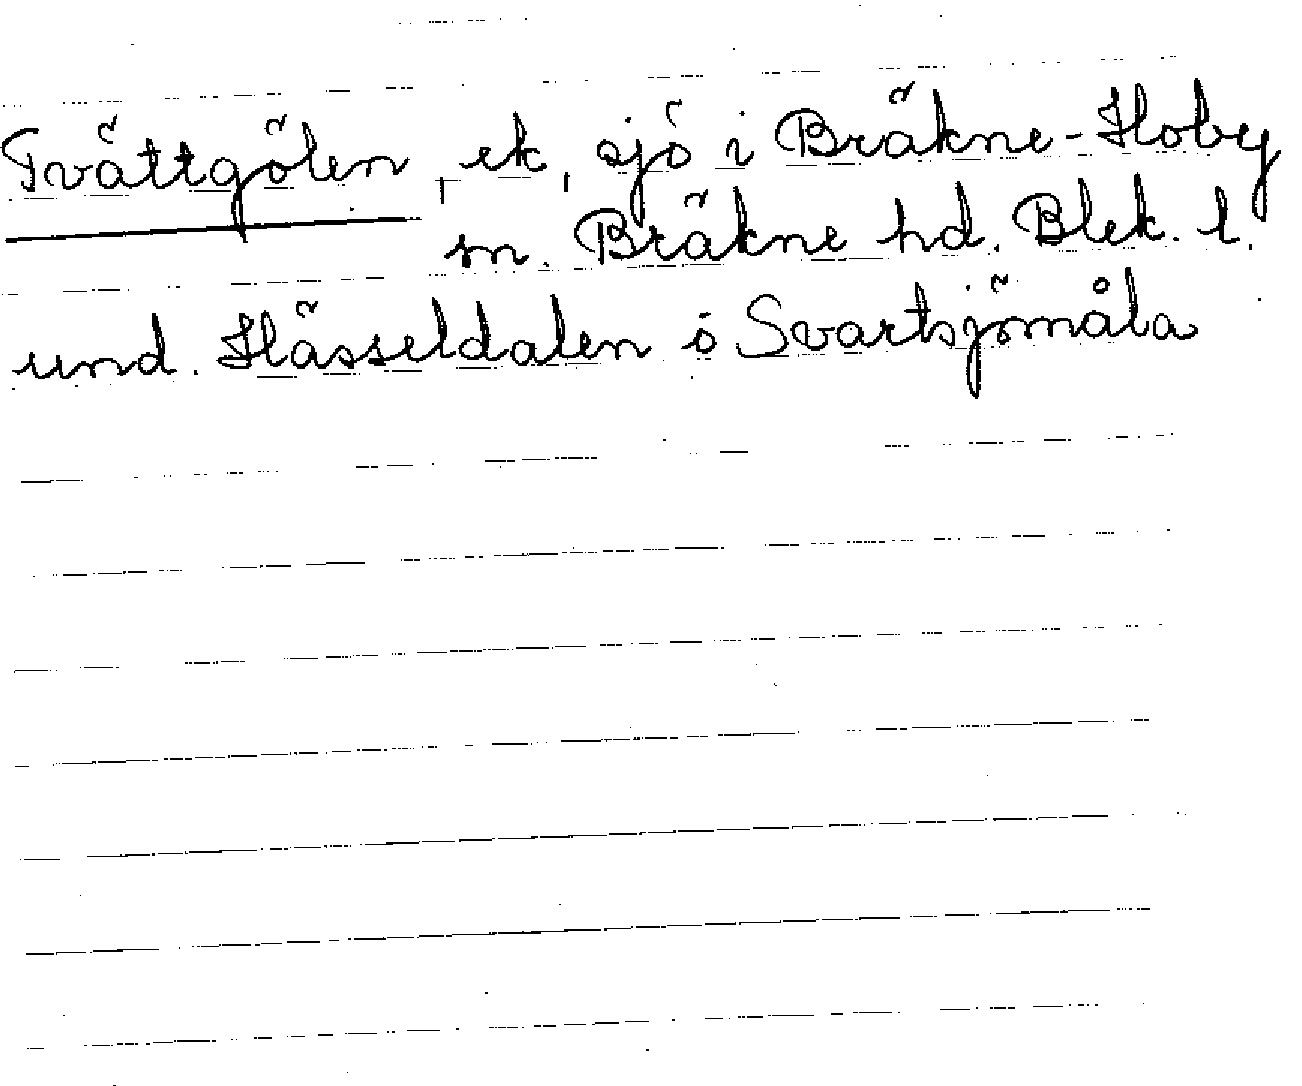 Tvättgölen, ek, sjö i Bräkne-Hoby
sn. Bräkne hd. Blek. l.
und. Hässeldalen ö Svartsjömåla